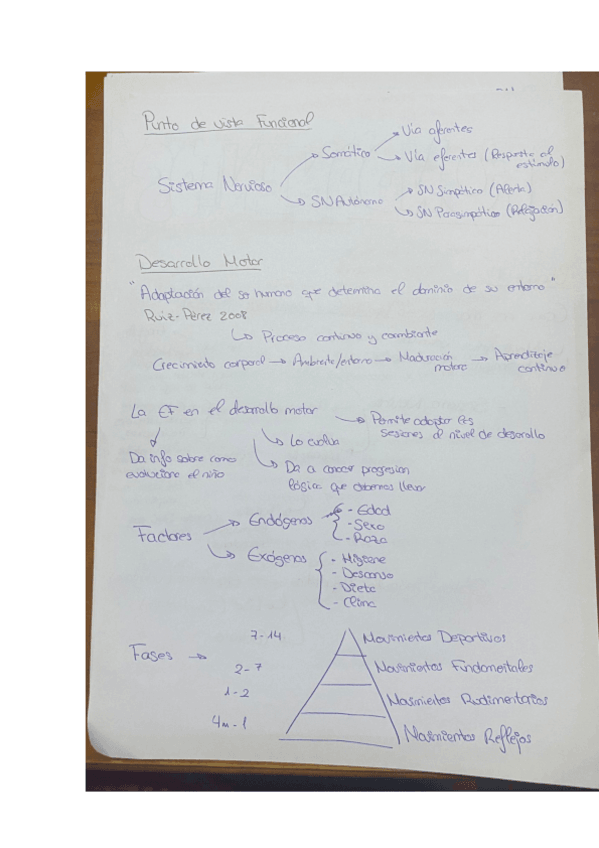 Punto de vista Funcional
Sistema Nervioso
Somático
Vía aferentes
Vía eferentes (Respuesta al
estímulo)
SN Autónomo
SN Simpático (Alerta)
SN Parasimpático (Relajación)
Desarrollo Motor
"Adaptación del ser humano que determina el dominio de su entorno"
Ruiz-Pérez 2008
Proceso continuo y cambiante
Crecimiento corporal → Ambiente/entorno → Maduración
motora
→ Aprendizaje
continuo
La EF en el desarrollo motor
Permite adaptar las
sesiones al nivel de desarrollo
Da info sobre como
evoluciona el niño
Lo evalua
Da a conocer progresion
lógica que debemos llevar
Factores
Endógenos
- Edad
- Sexo
- Raza
Exógenos
- Higiene
- Descanso
- Dieta
- Clima
Fases →
7-14
Movimientos Deportivos
2-7
Movimientos Fundamentales
1-2
Movimientos Rudimentarios
4m-1
Movimientos Reflejos